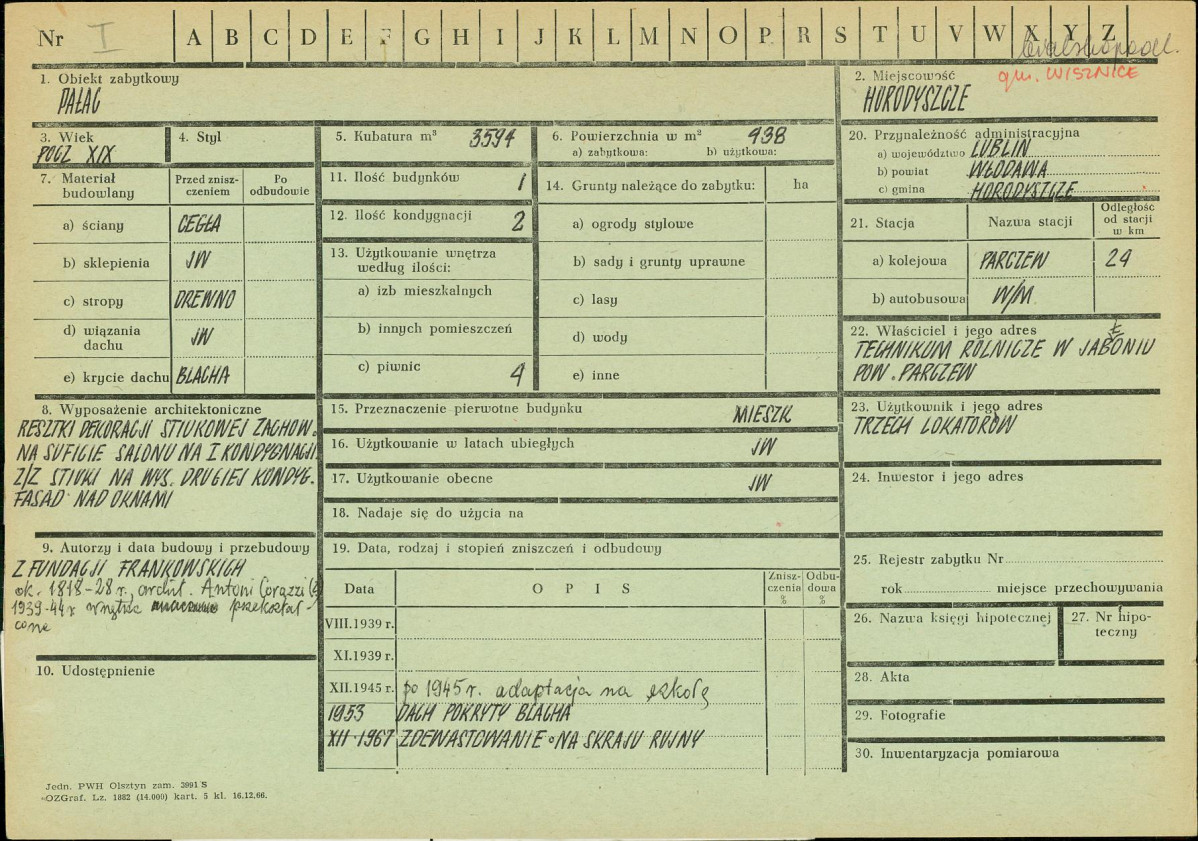 Nr I A B C D E F G H I J K L M N O P R S T U V W X Y Z
gm. WISZNICE
1. Obiekt zabytkowy
PAŁAC
2. Miejscowość
HORODYSZCZE
3. Wiek
POCZ XIX
4. Styl
5. Kubatura m³ 3594
6. Powierzchnia w m² 938
a) zabytkowa: b) użytkowa:
7. Materiał budowlany
Przed znisz-
czeniem
Po
odbudowie
a) ściany CEGŁA
b) sklepienia JW
c) stropy DREWNO
d) wiązania
dachu JW
e) krycie dachu BLACHA
8. Wyposażenie architektoniczne
RESZTKI DEKORACJI STIUKOWEJ ZACHOW.
NA SUFICIE SALONU NA I KONDYGNACJI
Z/Z STIUKI NA WYS. DRUGIEJ KONDYG.
FASAD NAD OKNAMI
9. Autorzy i data budowy i przebudowy
Z FUNDACJI FRANKOWSKICH
ok. 1818-28 r., archit. Antoni Corazzi (?)
1939-44 r. wnętrze przekształ-
cone
10. Udostępnienie
11. Ilość budynków 1
12. Ilość kondygnacji 2
13. Użytkowanie wnętrza
według ilości:
a) izb mieszkalnych
b) innych pomieszczeń
c) piwnic 4
14. Grunty należące do zabytku: ha
a) ogrody stylowe
b) sady i grunty uprawne
c) lasy
d) wody
e) inne
15. Przeznaczenie pierwotne budynku MIESZK
16. Użytkowanie w latach ubiegłych JW
17. Użytkowanie obecne JW
18. Nadaje się do użycia na
19. Data, rodzaj i stopień zniszczeń i odbudowy
Data O P I S Znisz-
czenia
% Odbu-
dowa
%
VIII.1939 r.
XI.1939 r.
XII.1945 r. po 1945 r. adaptacja na szkołę
1953 DACH POKRYTY BLACHĄ
XII-1967 ZDEWASTOWANIE NA SKRAJU RUINY
20. Przynależność administracyjna
a) województwo LUBLIN
b) powiat WŁODAWA
c) gmina HORODYSZCZE
21. Stacja Nazwa stacji Odległość
od stacji
w km
a) kolejowa PARCZEW 24
b) autobusowa W/M
22. Właściciel i jego adres
TECHNIKUM ROLNICZE W JABŁONIU
POW. PARCZEW
23. Użytkownik i jego adres
TRZECH LOKATORÓW
24. Inwestor i jego adres
25. Rejestr zabytku Nr
rok miejsce przechowywania
26. Nazwa księgi hipotecznej
27. Nr hipo-
teczny
28. Akta
29. Fotografie
30. Inwentaryzacja pomiarowa
Jedn. PWH Olsztyn zam. 3991 S
OZGraf. Lz. 1882 (14.000) kart. 5 kl. 16.12.66.